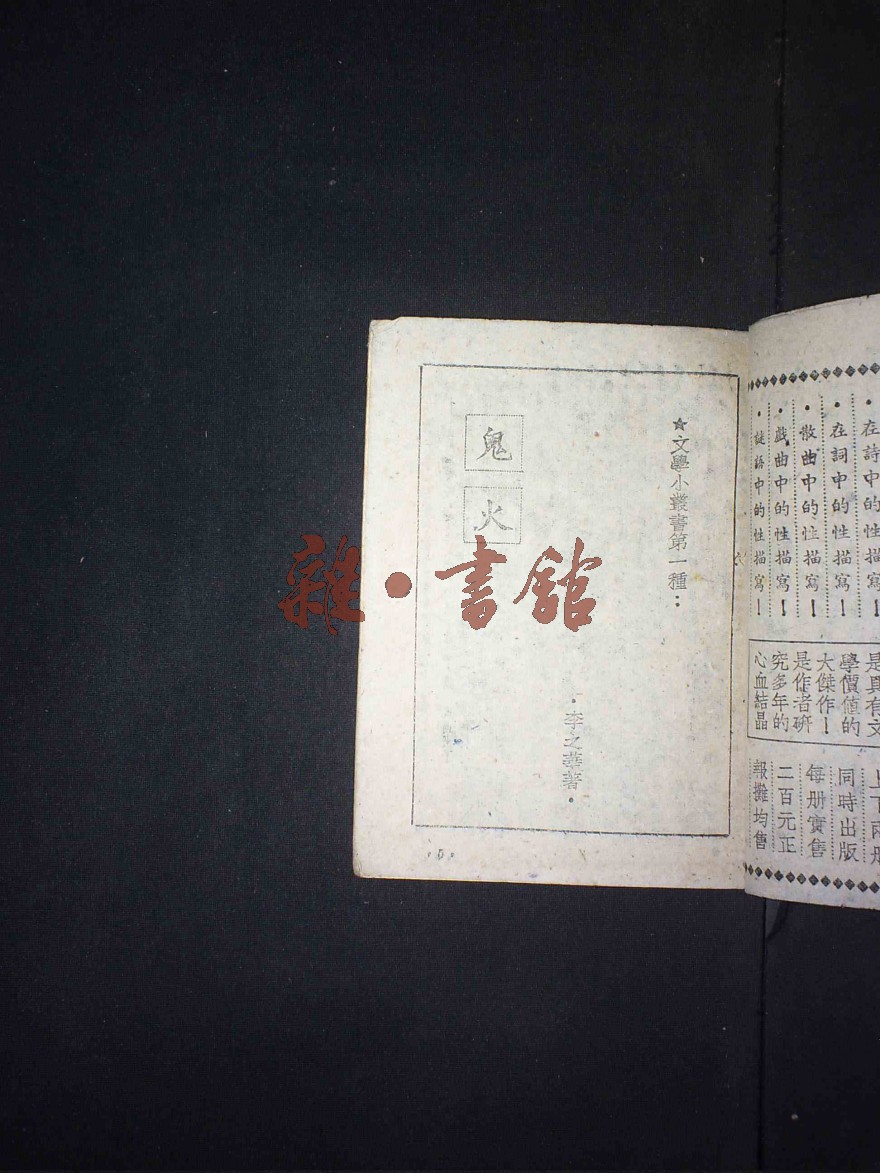 ·在詩中的性描寫！
·在詞中的性描寫！
·散曲中的性描寫！
·戲曲中的性描寫！
·謎語中的性描寫！
是具有文
學價值的
大傑作！
是作者研
究多年的
心血結晶
上下兩册
同時出版
每册實售
二百元正
報攤均售
★文學小叢書第一種：
鬼火
·李之華著·
雜·書館